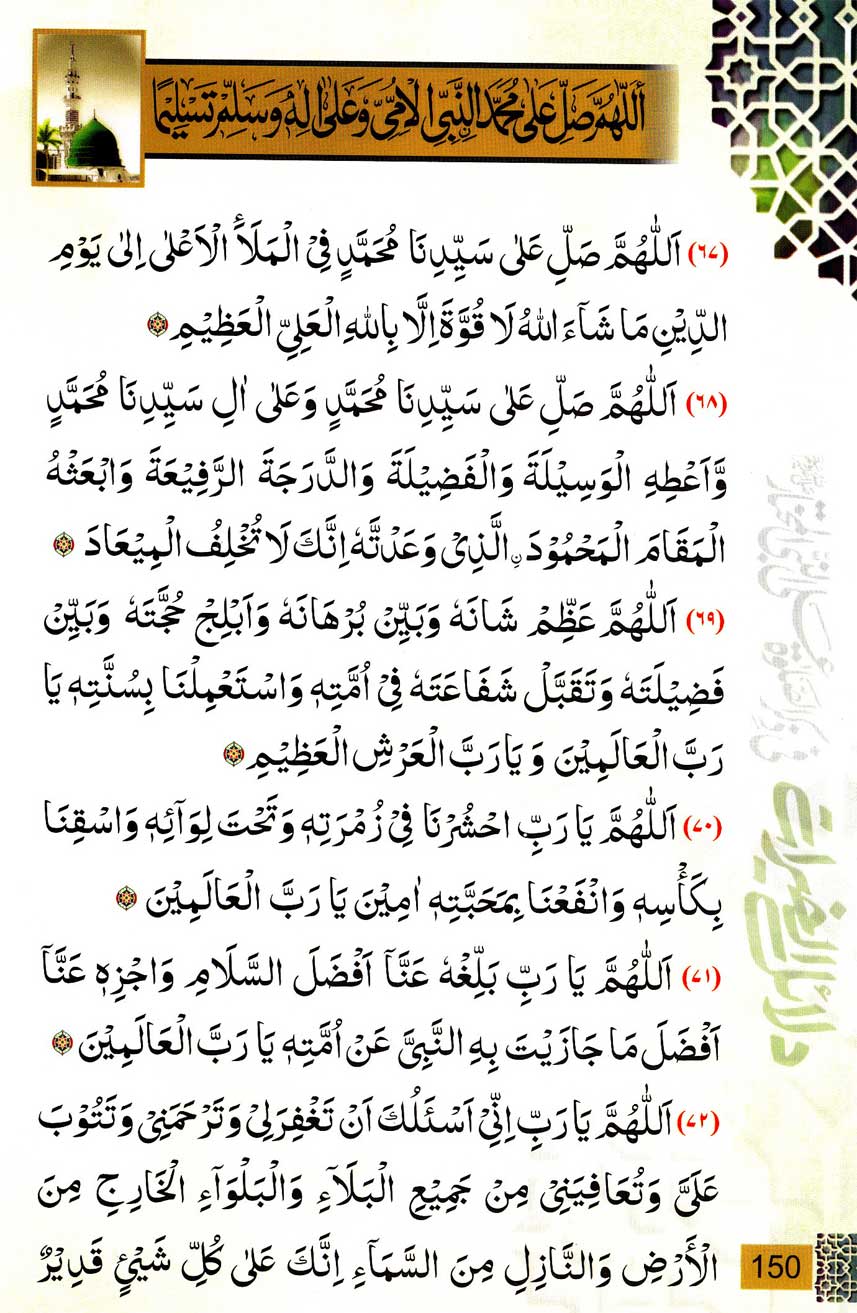 اَللّٰهُمَّ صَلِّ عَلٰى مُحَمَّدِ ࣙالنَّبِيِّ الْاُمِّيِّ وَعَلٰٓى اٰلِهٖ وَسَلِّمْ تَسْلِيْمًا
(٦٧) اَللّٰهُمَّ صَلِّ عَلٰى سَيِّدِنَا مُحَمَّدٍ فِى الْمَلَأِ الْاَعْلٰى اِلٰى يَوْمِ
الدِّيْنِ مَا شَآءَ اللهُ لَا قُوَّةَ اِلَّا بِاللهِ الْعَلِىِّ الْعَظِيْمِ
(٦٨) اَللّٰهُمَّ صَلِّ عَلٰى سَيِّدِنَا مُحَمَّدٍ وَعَلٰى اٰلِ سَيِّدِنَا مُحَمَّدٍ
وَّاَعْطِهِ الْوَسِيْلَةَ وَالْفَضِيْلَةَ وَالدَّرَجَةَ الرَّفِيْعَةَ وَابْعَثْهُ
الْمَقَامَ الْمَحْمُوْدَ ن الَّذِىْ وَعَدْتَّهٗ اِنَّكَ لَا تُخْلِفُ الْمِيْعَادَ
(٦٩) اَللّٰهُمَّ عَظِّمْ شَانَهٗ وَبَيِّنْ بُرْهَانَهٗ وَاَبْلِجْ حُجَّتَهٗ وَبَيِّنْ
فَضِيْلَتَهٗ وَتَقَبَّلْ شَفَاعَتَهٗ فِىْ اُمَّتِهٖ وَاسْتَعْمِلْنَا بِسُنَّتِهٖ يَا
رَبَّ الْعَالَمِيْنَ وَ يَارَبَّ الْعَرْشِ الْعَظِيْمِ
(٧٠) اَللّٰهُمَّ يَا رَبِّ احْشُرْنَا فِىْ زُمْرَتِهٖ وَتَحْتَ لِوَآئِهٖ وَاسْقِنَا
بِكَأْسِهٖ وَانْفَعْنَا بِمَحَبَّتِهٖ اٰمِيْنَ يَا رَبَّ الْعَالَمِيْنَ
(٧١) اَللّٰهُمَّ يَا رَبِّ بَلِّغْهُ عَنَّآ اَفْضَلَ السَّلَامِ وَاجْزِهٖ عَنَّآ
اَفْضَلَ مَا جَازَيْتَ بِهِ النَّبِىَّ عَنْ اُمَّتِهٖ يَا رَبَّ الْعَالَمِيْنَ
(٧٢) اَللّٰهُمَّ يَارَبِّ اِنِّىْ اَسْئَلُكَ اَنْ تَغْفِرَلِىْ وَتَرْحَمَنِىْ وَتَتُوْبَ
عَلَىَّ وَتُعَافِيَنِىْ مِنْ جَمِيْعِ الْبَلَآءِ وَالْبَلْوَآءِ الْخَارِجِ مِنَ
الْأَرْضِ وَالنَّازِلِ مِنَ السَّمَآءِ اِنَّكَ عَلٰى كُلِّ شَيْئٍ قَدِيْرٌ
دلائل الخيرات
150